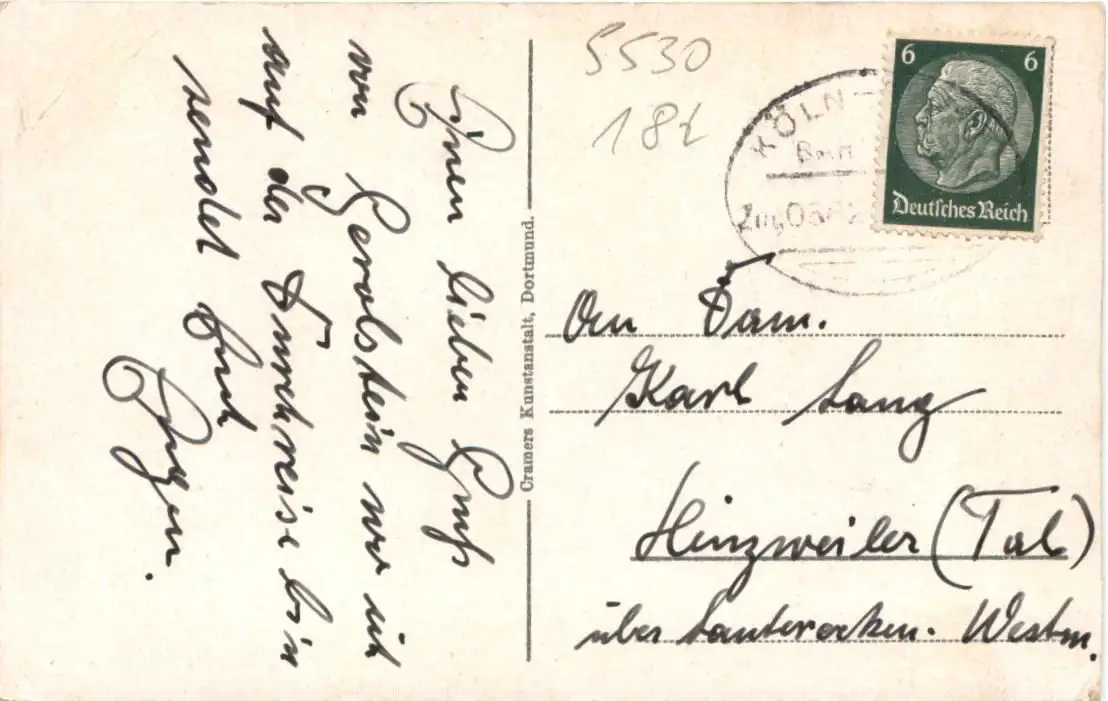 Einen lieben Gruß
von Gerolstein wo ich
auf der Durchreise bin
sendet Euch
Cramers Kunstanstalt, Dortmund.
5530
18
KÖLN
Zug
6 6
Deutsches Reich
An Fam.
Karl Lang
Hinzweiler (Tal)
über Lauterecken. Westm.